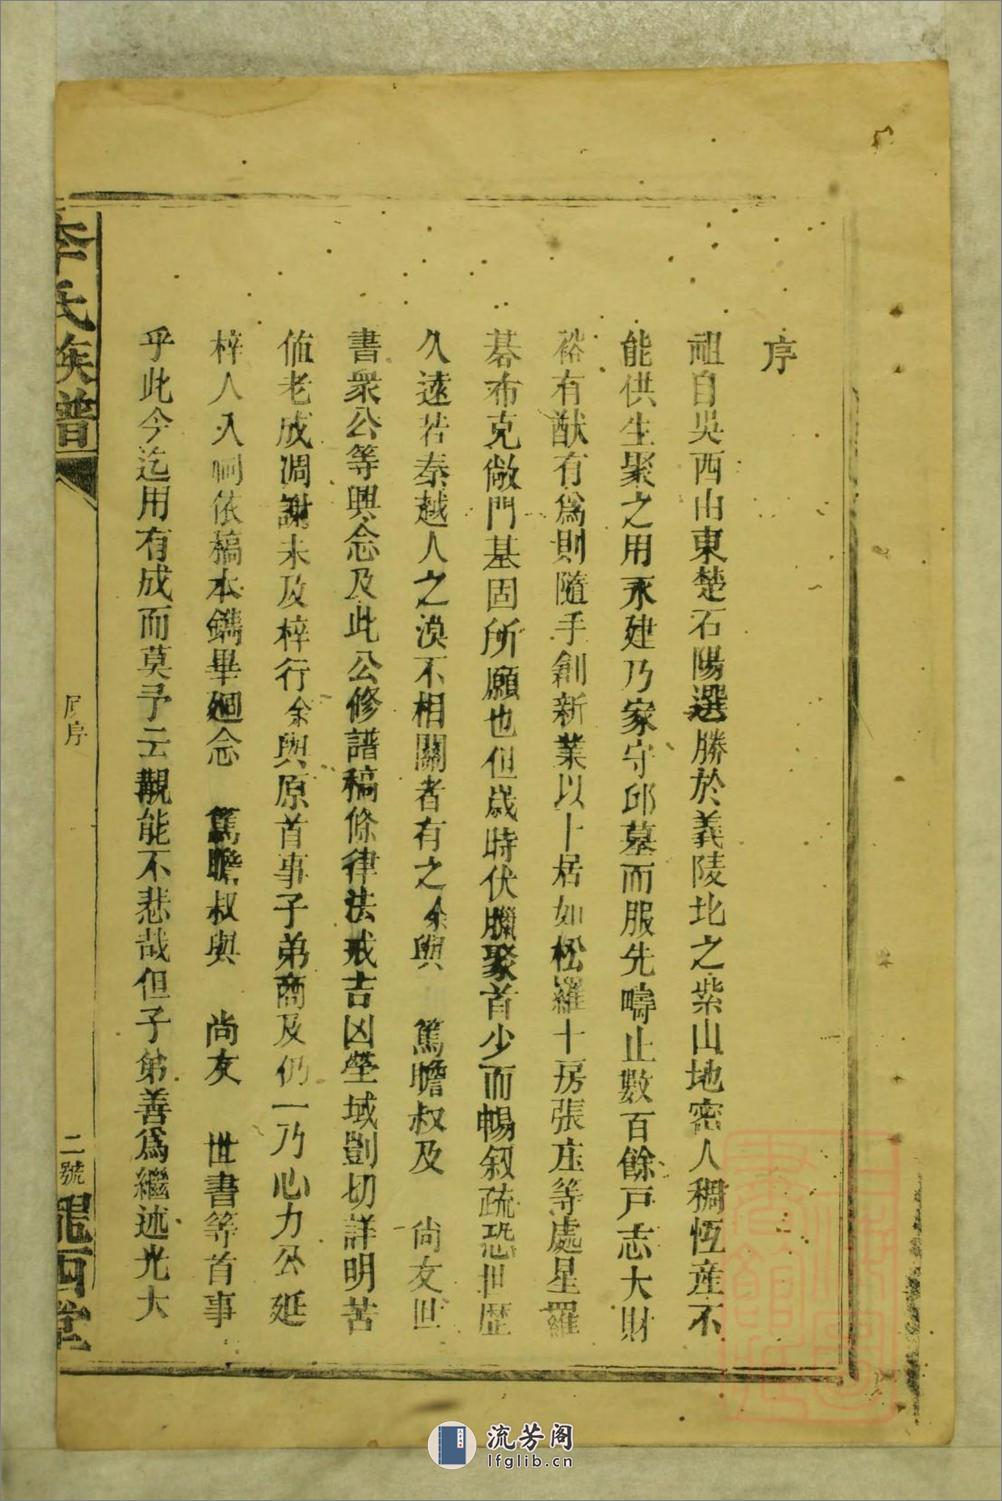 序
祖自吳西山東楚石陽選勝於義陵北之紫山地密人稠恆產不
能供生聚之用永建乃家守邱墓而服先疇止數百餘戶志大財
裕有猷有爲則隨手創新業以卜居如松羅十房張庄等處星羅
碁布克敞門基固所願也但歲時伏臘聚首少而暢叙疏恐世歴
久遠若秦越人之漠不相關者有之余與　篤瞻叔及　尚友世
書衆公等興念及此公修譜稿條律法戒吉凶塋域剴切詳明苦
値老成凋謝未及梓行余與原首事子弟商及仍一乃心力公延
梓人入祠依稿本鐫畢廻念　篤瞻叔與　尚友　世書等首事
乎此今迄用有成而莫予云覯能不悲哉但子弟善爲繼述光大
李氏族譜
序
二號
隴西堂
流芳阁
lfglib.cn